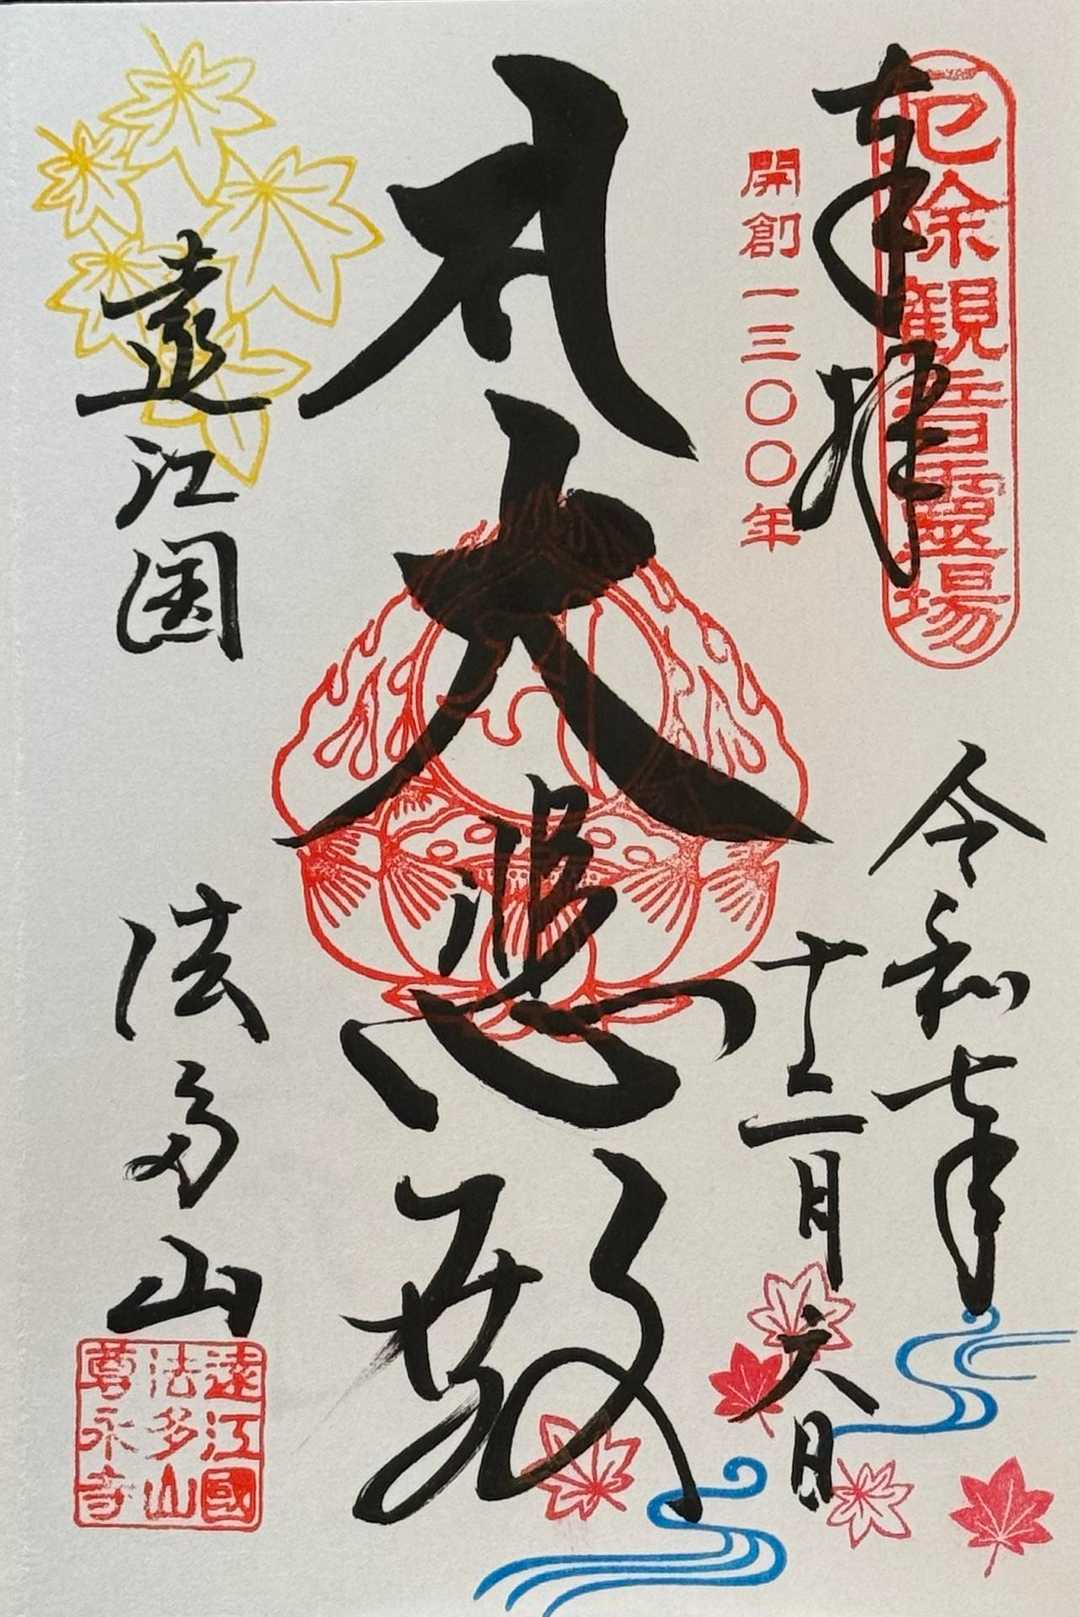 奉拝
厄除観音靈場
開創一三〇〇年
令和七年
十二月六日
大悲殿
遠江国
法多山
遠江國
法多山
尊永寺